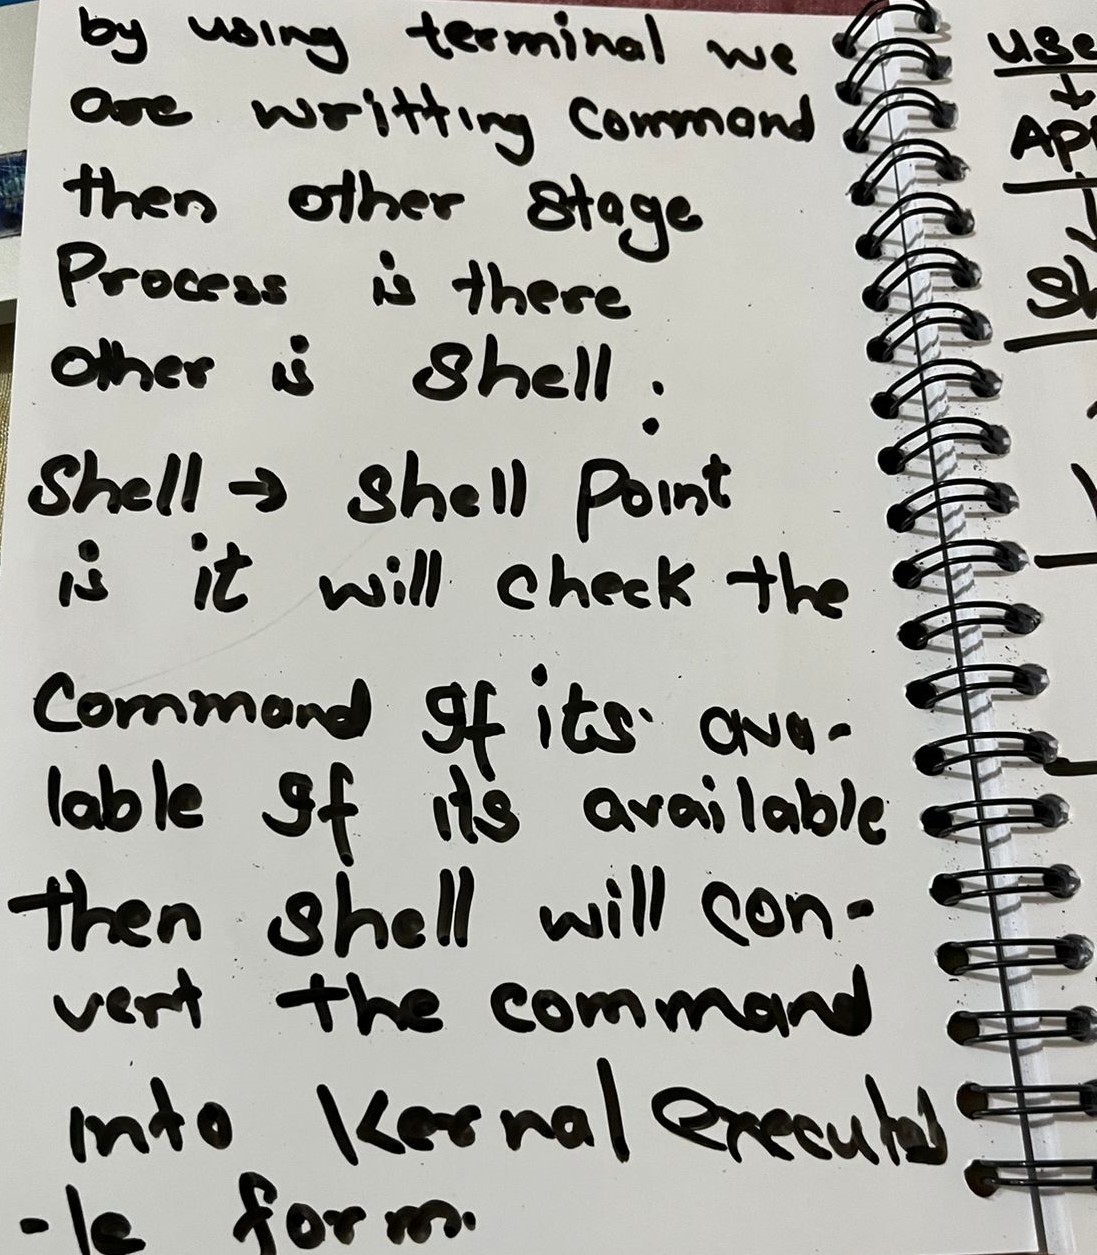 by using terminal we
are writting Command
then other stage
Process is there
other is shell :
Shell → shell point
is it will check the
Command If its ava-
lable If its available
then shell will con-
vert the command
into Kernal executab
-le form.
use
↓
↓